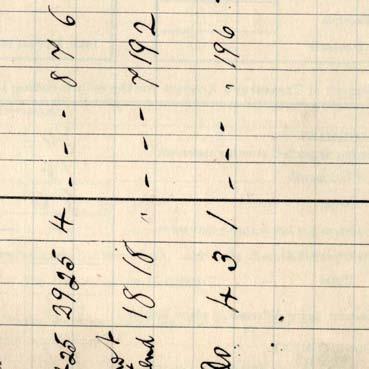 25 3925 4 - - - 8 7 6
end 18 18 " - - - 7 192
Do 4 3 1 - - - " 196